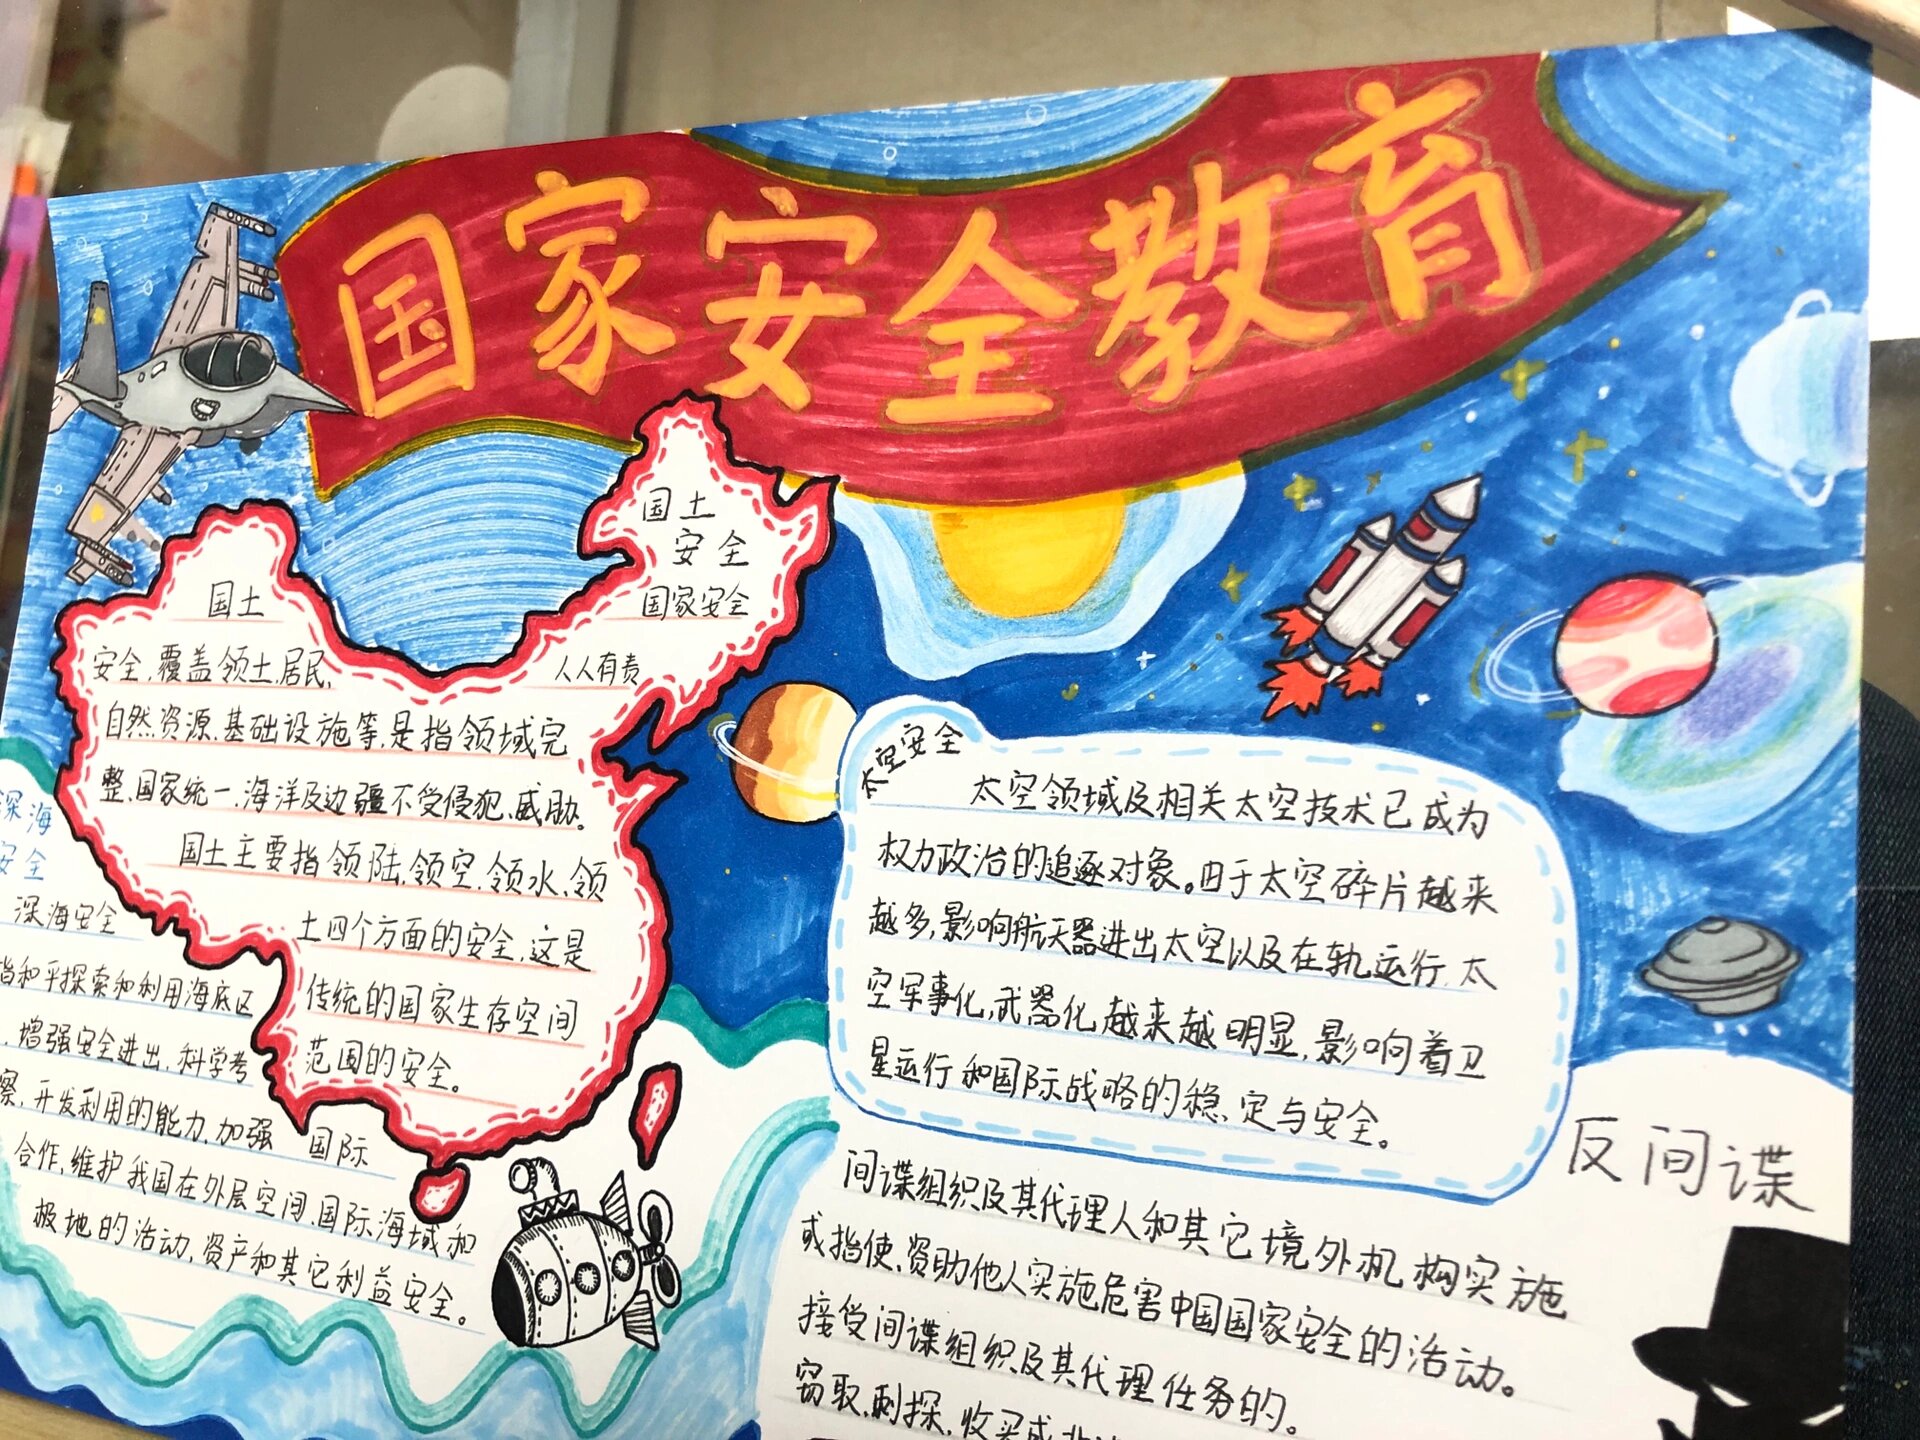 国家安全教育
国土
安全
国家安全
人人有责
国土
安全,覆盖领土,居民,
自然,资源,基础设施等,是指领域完
整,国家统一,海洋及边疆不受侵犯,威胁。
国土主要指领陆,领空,领水,领
土四个方面的安全,这是
传统的国家生存空间
范围的安全。
深海
安全
深海安全
指和平探索和利用海底区
,增强安全进出,科学考
察,开发利用的能力,加强 国际
合作,维护我国在外层空间,国际海域和
极地的活动,资产和其它利益安全。
太空安全
太空领域及相关太空技术已成为
权力政治的追逐对象。由于太空碎片越来
越多,影响航天器进出太空以及在轨运行,太
空军事化,武器化越来越明显,影响着卫
星运行和国际战略的稳定与安全。
反间谍
间谍组织及其代理人和其它境外机构实施
或指使,资助他人实施危害中国国家安全的活动。
接受间谍组织及其代理任务的。
窃取,刺探,收买或